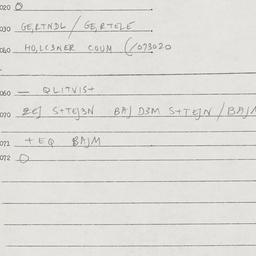 020 0
030 GE,RTNDL / GE,RTELE
060 HO,LC3NER COUM (/073020
060 — QLITVIS+
070 2EJ S+TEJ3N BAJ D3M S+TEJN / BAJM
071 +EQ BAJM
072 0